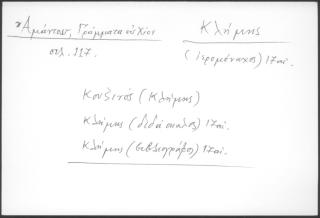 Ἀμάντου, Γράμματα εἰς Χίον
σελ. 117.
Κλήμης
(ἱερομόναχος) 17 αἰ.
Κουζινός (Κλήμης)
Κλήμης (διδάσκαλος) 17 αἰ.
Κλήμης (βιβλιογράφος) 17 αἰ.